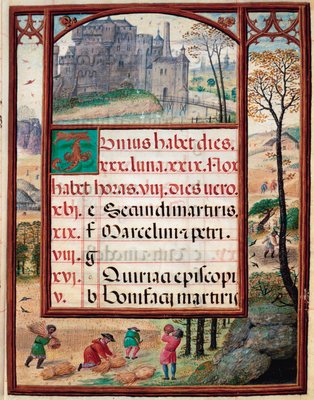 Iunius habet dies.
xxx. luna. xxix. Nox
habet horas. viii. dies vero.
xvi. e Secundi martiris.
xix. f Marcelini z petri.
viii. g
xvi. Quiriaci episcopi
v. b Bonifacij martiris